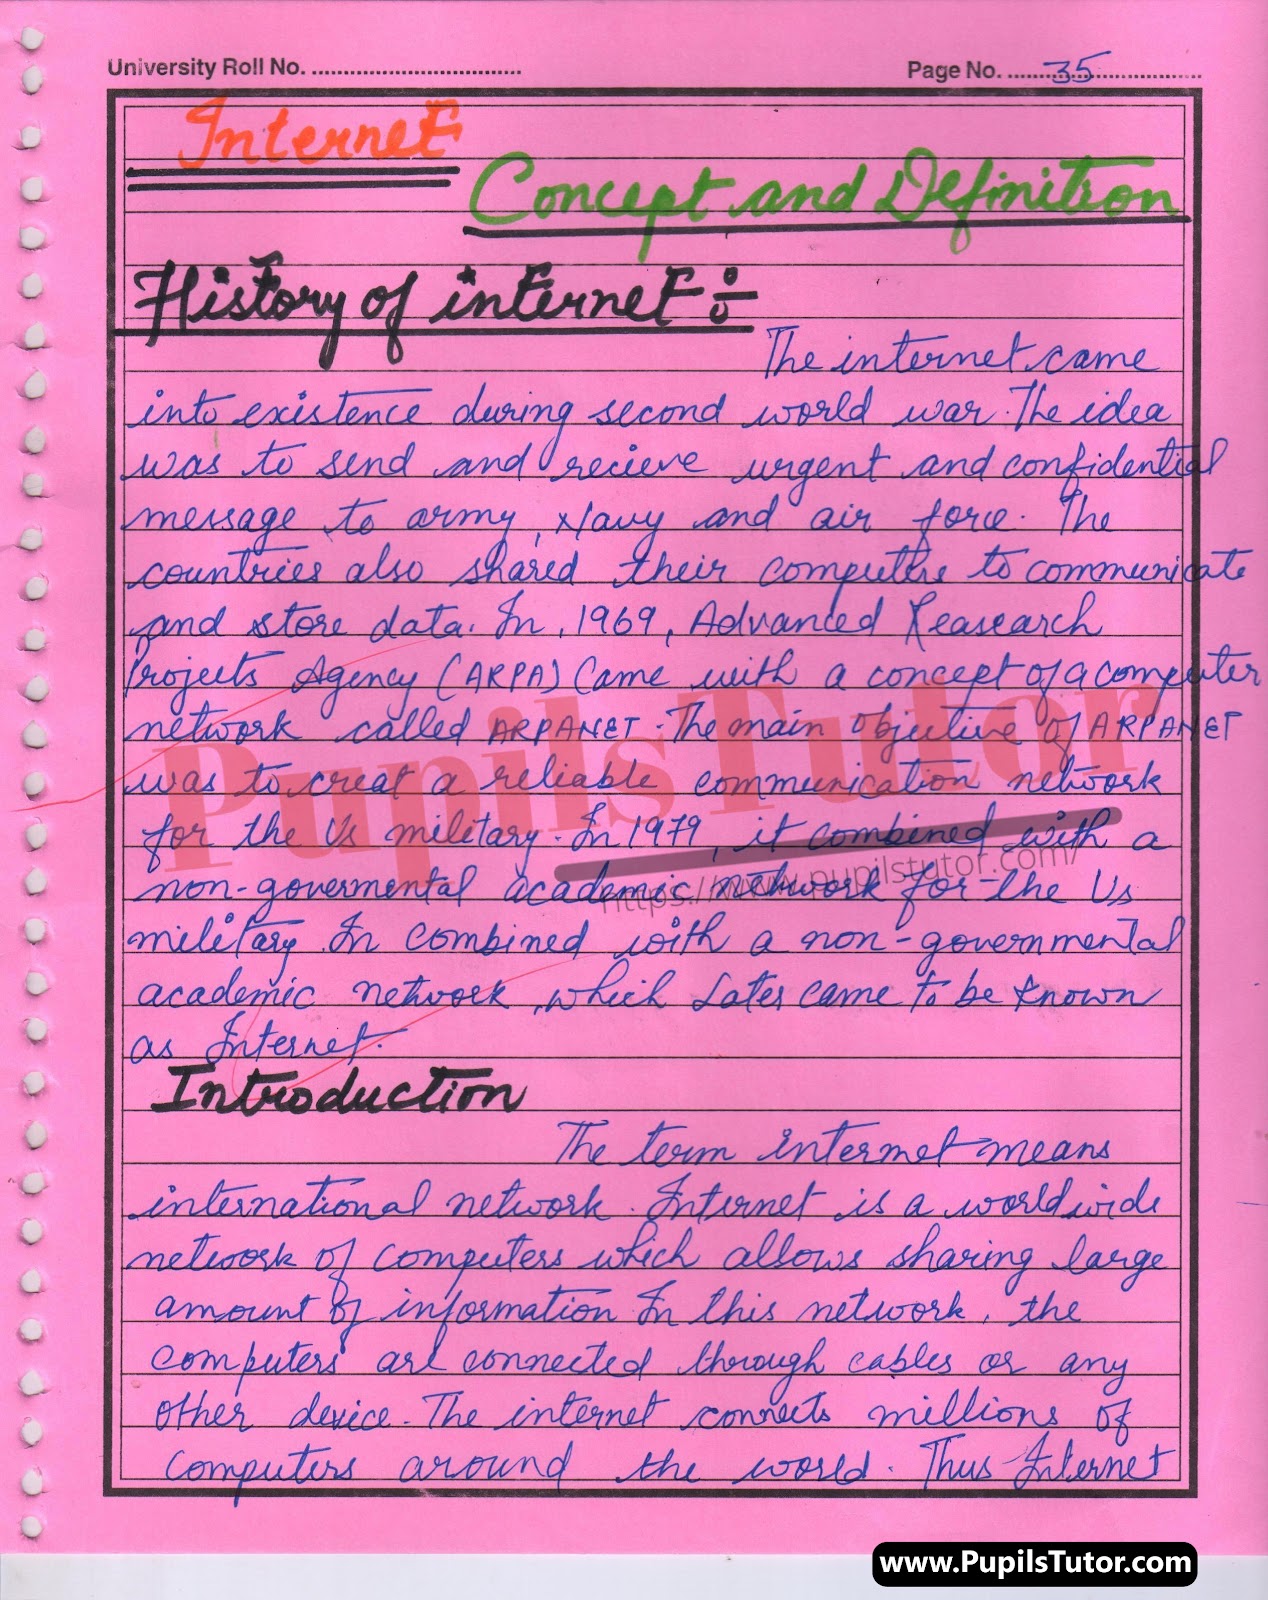 University Roll No. ................................. Page No. .....35.....
Internet
Concept and Definition
History of internet ÷
The internet came
into existence during second world war. The idea
was to send and recieve urgent and confidential
message to army, Navy and air force. The
countries also shared their computers to communicate
and store data. In, 1969, Advanced Reasearch
Projects Agency (ARPA) Came with a concept of a computer
network called ARPANET. The main objective of ARPANET
was to creat a reliable communication network
for the Us military. In 1979, it combined with a
non-govermental academic network for the Us
military In combined with a non-governmental
academic network, which Later came to be known
as Internet.
Introduction
The term internet means
international network. Internet is a worldwide
network of computers which allows sharing large
amount of information In this network, the
computers are connected through cables or any
other device. The internet connects millions of
computers around the world. Thus Internet
PupilsTutor
https://www.pupilstutor.com/
www.PupilsTutor.com